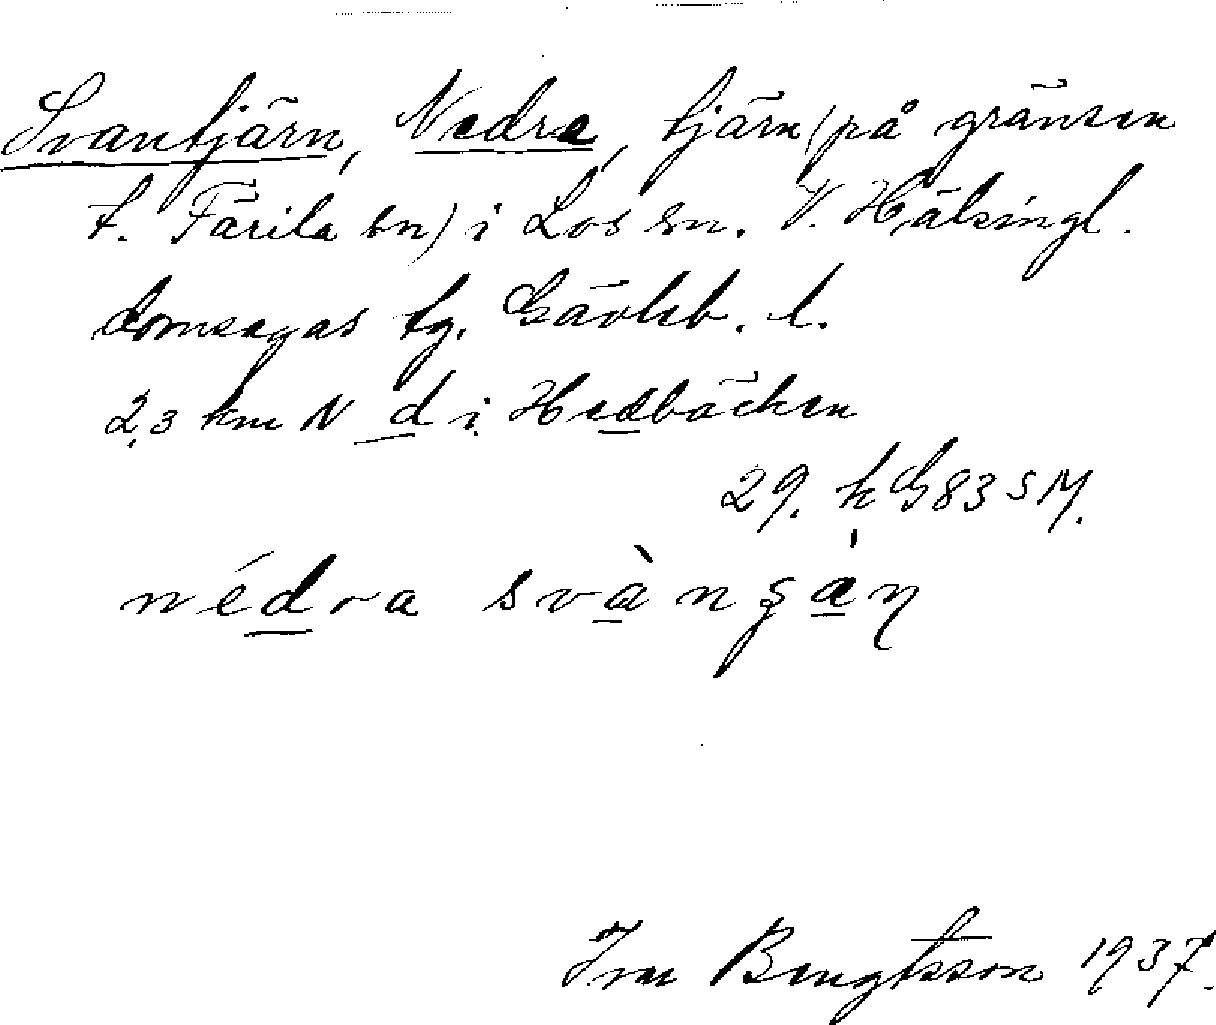 Svantjärn, Nedre, tjärn (på gränsen
t. Färila sn) i Los sn. V. Hälsingl.
domsagas tg. Gävleb. l.
2,3 km N d i Hedbäcken
29. k G83 SM.
nédra svàngàn
Bengtsson 1937.